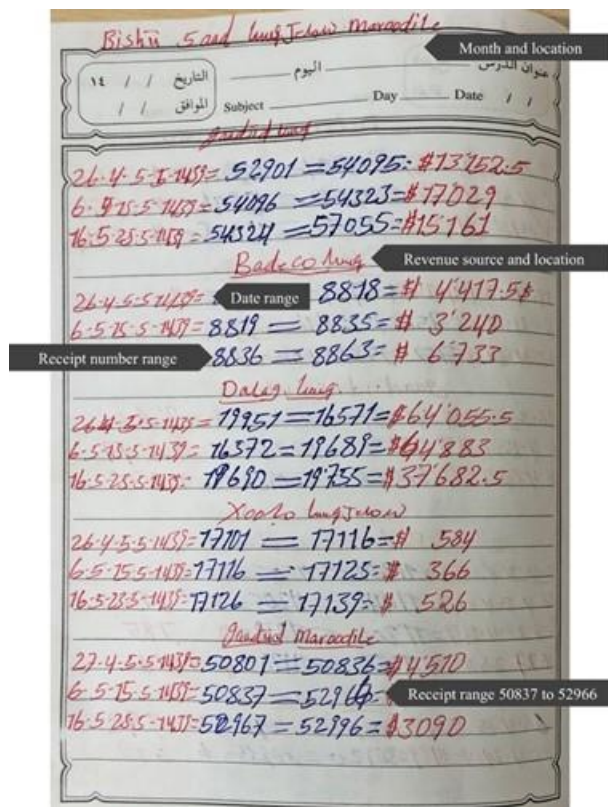 Bishii 5aad luuqJelow Maroodile
Month and location
عنوان الدرس اليوم التاريخ / / ١٤
Subject Day Date / / الموافق / /
gaadiid luuq
26-4-5-5-1439= 52901 = 54095= $13'152.5
6-5-15-5-1439= 54096 = 54323= $17029
16-5-25-5-1439= 54324 = 57055= $15'161
Badeco luuq
Revenue source and location
26-4-5-5-1439=
Date range
8818= $ 4'417.5
6-5-15-5-1439= 8819 = 8835= $ 3'240
Receipt number range
8836 = 8863= $ 6'733
Dalag luuq
19951 = 16571= $64'055.5
6-5-15-5-1439= 16572 = 19689= $64'883
16-5-25-5-1439= 19690 = 19755= $37'682.5
Xoolo luuqJelow
26-4-5-5-1439= 17101 = 17116= $ 584
6-5-15-5-1439= 17116 = 17125= $ 366
16-5-25-5-1439= 17126 = 17139= $ 526
gaadiid Maroodile
27-4-5-5-1439= 50801 = 50836= $4'510
6-5-15-5-1439= 50837 = 52966=
Receipt range 50837 to 52966
16-5-25-5-1439= 52967 = 52996= $3090